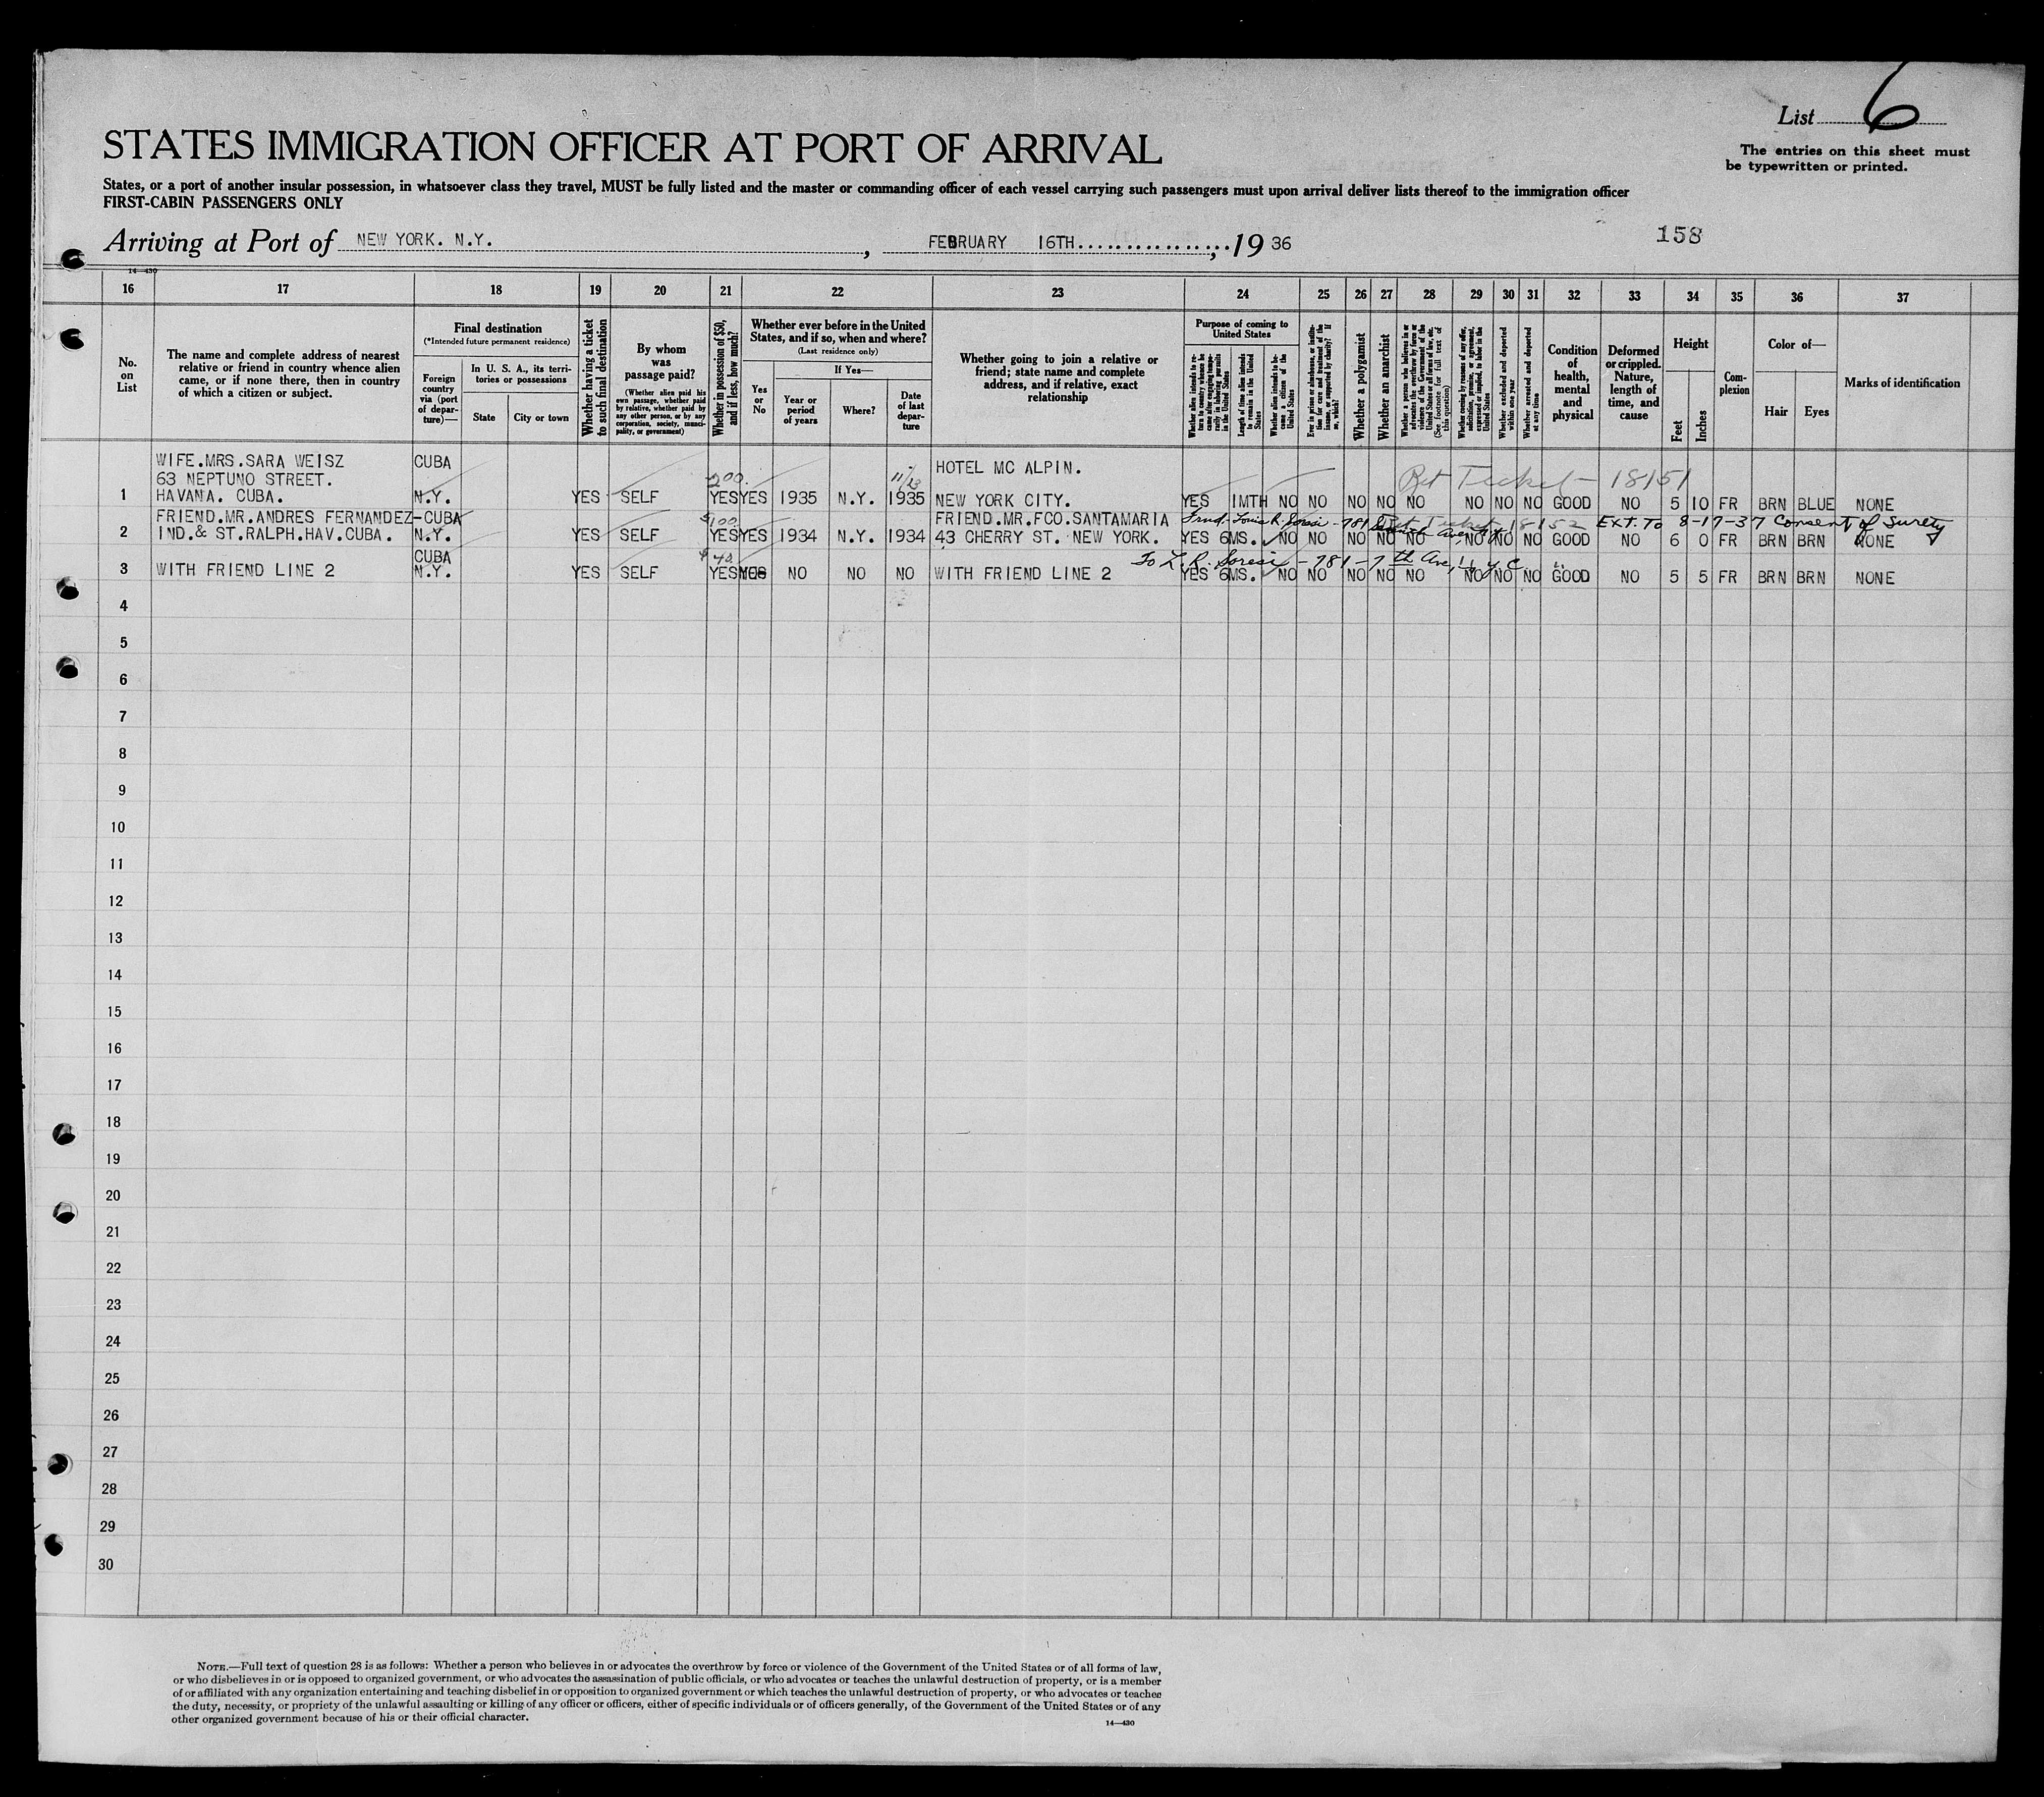 List 6
STATES IMMIGRATION OFFICER AT PORT OF ARRIVAL
The entries on this sheet must
be typewritten or printed.
States, or a port of another insular possession, in whatsoever class they travel, MUST be fully listed and the master or commanding officer of each vessel carrying such passengers must upon arrival deliver lists thereof to the immigration officer
FIRST-CABIN PASSENGERS ONLY
Arriving at Port of NEW YORK. N.Y. , FEBRUARY 16TH , 19 36
158
14—430
16 17 18 19 20 21 22 23 24 25 26 27 28 29 30 31 32 33 34 35 36 37
No. on List
The name and complete address of nearest
relative or friend in country whence alien
came, or if none there, then in country
of which a citizen or subject.
Final destination
(*Intended future permanent residence)
Foreign country via (port of departure)—
In U. S. A., its territories or possessions
State
City or town
Whether having a ticket to such final destination
By whom was passage paid?
(Whether alien paid his own passage, whether paid by relative, whether paid by any other person, or by any corporation, society, municipality, or government)
Whether in possession of $50, and if less, how much?
Whether ever before in the United States, and if so, when and where?
(Last residence only)
Yes or No
If Yes—
Year or period of years
Where?
Date of last departure
Whether going to join a relative or
friend; state name and complete
address, and if relative, exact
relationship
Purpose of coming to United States
Whether alien intends to return to country whence he came after engaging temporarily in laboring pursuits in the United States
Length of time alien intends to remain in the United States
Whether alien intends to become a citizen of the United States
Ever in prison or almshouse, or institution for care and treatment of the insane, or supported by charity? If so, which?
Whether a polygamist
Whether an anarchist
Whether a person who believes in or advocates the overthrow by force or violence of the Government of the United States or all forms of law, etc. (See footnote for full text of this question)
Whether coming by reason of any offer, solicitation, promise, or agreement, expressed or implied, to labor in the United States
Whether excluded and deported within one year
Whether arrested and deported at any time
Condition of health, mental and physical
Deformed or crippled. Nature, length of time, and cause
Height
Feet
Inches
Complexion
Color of—
Hair
Eyes
Marks of identification
WIFE.MRS.SARA WEISZ CUBA
63 NEPTUNO STREET. 200. 11/23 HOTEL MC ALPIN. Ret Ticket — 18151
1 HAVANA. CUBA. N.Y. YES SELF YES YES 1935 N.Y. 1935 NEW YORK CITY. YES 1MTH NO NO NO NO NO NO NO NO GOOD NO 5 10 FR BRN BLUE NONE
FRIEND.MR.ANDRES FERNANDEZ-CUBA $100 FRIEND.MR.FCO.SANTAMARIA Frnd-Louis R. Soresi-781 Ret Ticket 18152 EXT. To 8-17-37 Consent of Surety
2 IND.& ST.RALPH.HAV.CUBA. N.Y. YES SELF YES YES 1934 N.Y. 1934 43 CHERRY ST. NEW YORK. YES 6MS. NO NO NO NO NO NO NO NO GOOD NO 6 0 FR BRN BRN NONE
CUBA $ 40 To L. R. Soresi - 781 - 7th Ave, N.Y.C.
3 WITH FRIEND LINE 2 N.Y. YES SELF YES NO NO NO WITH FRIEND LINE 2 YES 6MS. NO NO NO NO NO NO NO NO GOOD NO 5 5 FR BRN BRN NONE
4
5
6
7
8
9
10
11
12
13
14
15
16
17
18
19
20
21
22
23
24
25
26
27
28
29
30
NOTE.—Full text of question 28 is as follows: Whether a person who believes in or advocates the overthrow by force or violence of the Government of the United States or of all forms of law,
or who disbelieves in or is opposed to organized government, or who advocates the assassination of public officials, or who advocates or teaches the unlawful destruction of property, or is a member
of or affiliated with any organization entertaining and teaching disbelief in or opposition to organized government or which teaches the unlawful destruction of property, or who advocates or teaches
the duty, necessity, or propriety of the unlawful assaulting or killing of any officer or officers, either of specific individuals or of officers generally, of the Government of the United States or of any
other organized government because of his or their official character.
14—430